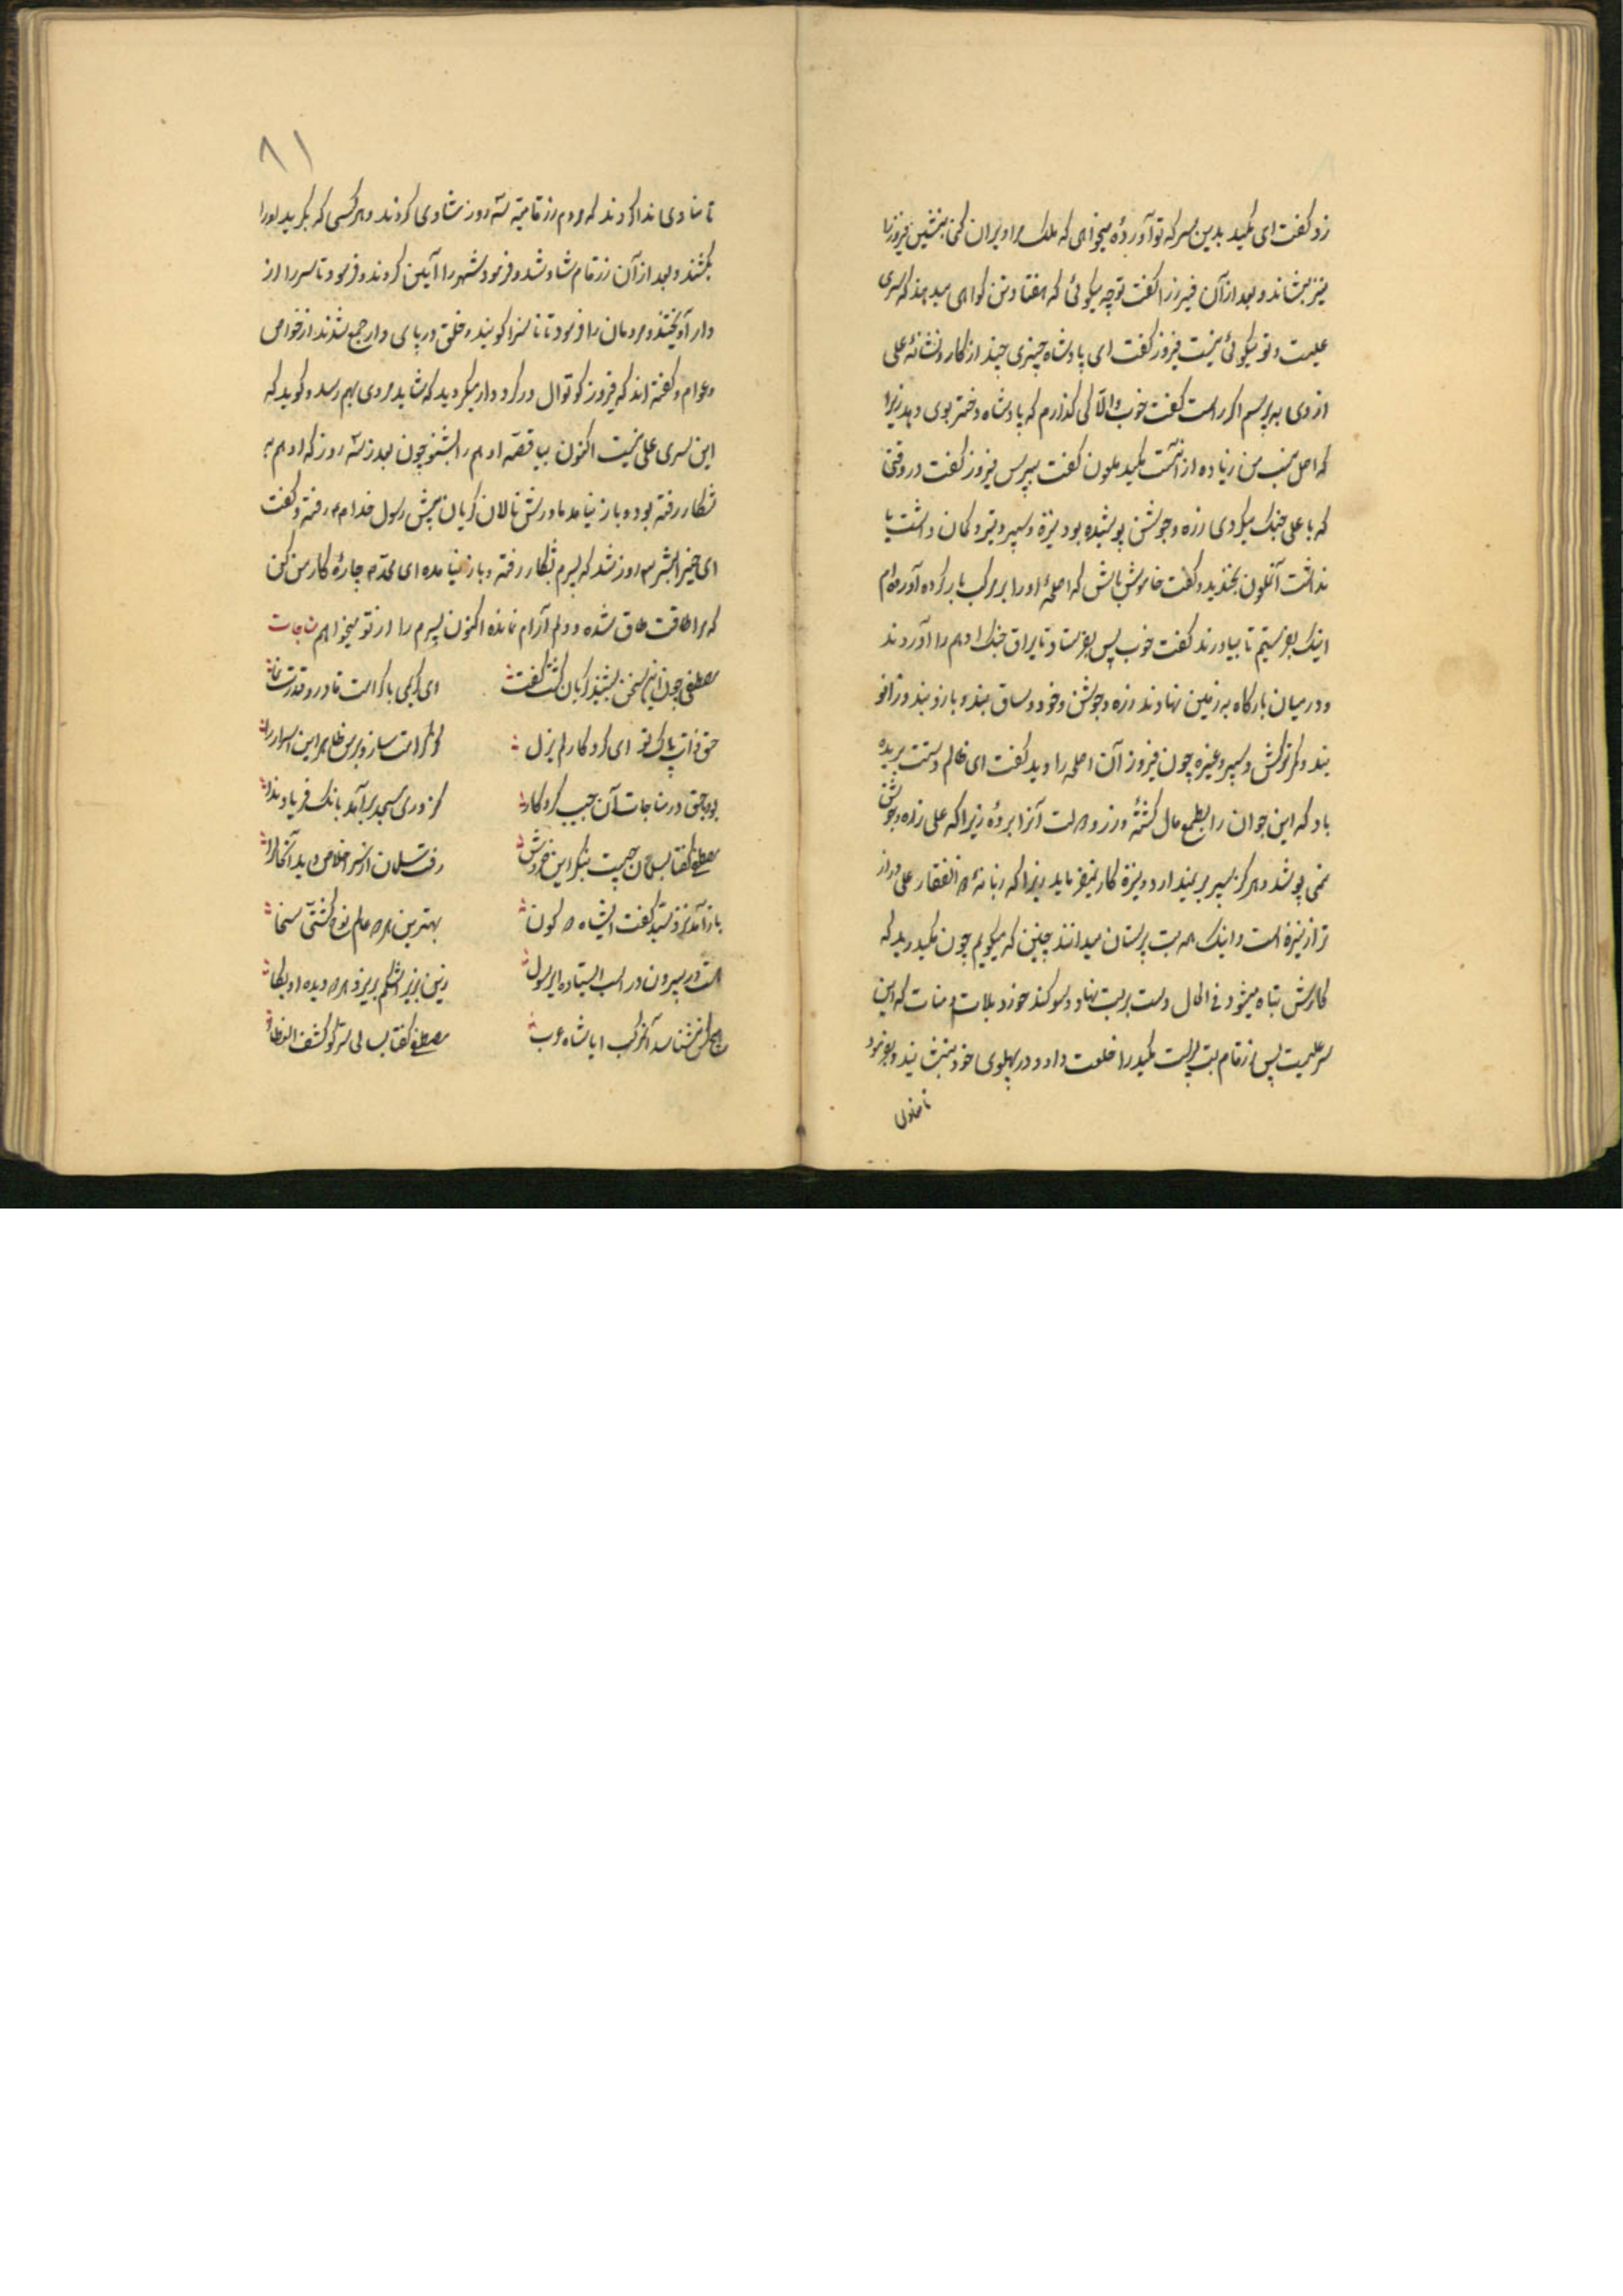 زد و گفت ای مکید بدین سر که تو آوردهٔ میخواهی که ملک مرا ویران کنی بنشین فیروز را
نیز بنشاند و بعد از آن فیروز را گفت تو چه میگوئی که هفتاد تن گواهی میدهند که سری
علیست و تو میگوئی نیست فیروز گفت ای پادشاه چیزی چند از کار و نشانهٔ علی
از وی بپرسم اگر راست گفت خوب والّا کی گذارم که پادشاه دختر بوی دهد زیرا
که اصل نسب من زیاده از آنست مکید ملعون گفت بپرس فیروز گفت در وقتی
که با علی جنک میکردی زره و جوشن پوشیده بود نیزه و سپر و تیر و کمان داشت یا
نداشت آنملعون بخندید و گفت خاموش باش که اسلحهٔ او را بر مرکب بار کرده آورده‌ام
اینک بفرستیم تا بیاورند گفت خوب پس بفرستاد تا یراق جنک ادهم را آوردند
و در میان بارگاه بر زمین نهادند زره و جوشن و خود و ساق بند و بازو بند و زانو
بند و کمر ترکش و سپر و غیره چون فیروز آن اسلحه را دید گفت ای ظالم دستت بریده
باد که این جوان را بطمع مال کشتهٔ و زر و آنرا بردهٔ زیرا که علی زره و جوشن
نمی پوشد و هرگز سپر بر نمیدارد و نیزه کار نمیفرماید زیرا که زبانهٔ ذالفقار علی دراز
تر از نیزه است و اینک همه بت پرستان میدانند چنین که میگویم چون مکید دید که
کارش تباه میشود فی الحال دست بر بت نهاد و سوگند خورد بلات و منات که این
سر علیست پس زرقام بت پرست مکید را خلعت داد و در پهلوی خود بنشانید و بفرمود
تا منادی
۸۱
تا منادی ندا کردند که مردم زرقامیه سه روز شادی کردند و هر کسی که بگرید او را
بکشند و بعد از آن زرقام شاد شد و فرمود شهر را آیین کردند و فرمود تا سر را از
دار آویختند و مردمان را فرمود تا ناسزا گویند و خلق در پای دار جمع شدند از خواص
و عوام و گفته اند که فیروز کوتوال در گرد دار میگردید که شاید مردی بهم رسد و گوید که
این سری علی نیست اکنون بیا قصّه ادهم را بشنو چون بعد از سه روز که ادهم به
شکار رفته بود و باز نیامد مادرش نالان گریان پیش رسول خدا ص رفت و گفت
ای خیر البشر سه روز شد که پسرم بشکار رفته و باز نیامده ای محمّد چارهٔ کار من کن
که مرا طاقت طاق شده و دلم آرام نمانده اکنون پسرم را از تو میخواهم مناجات
مصطفی چون این سخن بشنید گریان گشت گفت ای کریمی با کرامت قادر و قدرت
حق ذات پاک تو ای کردگار لم یزل کز کرامت ساز و بر من ظاهر این اسرار را
بود حق در مناجات آن حبیب کردگار کز دری مسجد بر آمد بانک فریاد
مصطفی گفتا بسلمان چیست بنگر این خروش رفت سلمان از سر اخلاص دید
باز آمد نزد سیّد گفت ایشاه بهترین هر دو عالم نوح کشتی
است در بیرون در اسب ایستاده ای رسول زین بزیر اشکم بریزد از دو دیده
هیچکس نشناسد آنمرکب ایا شاه عرب مصطفی گفتا